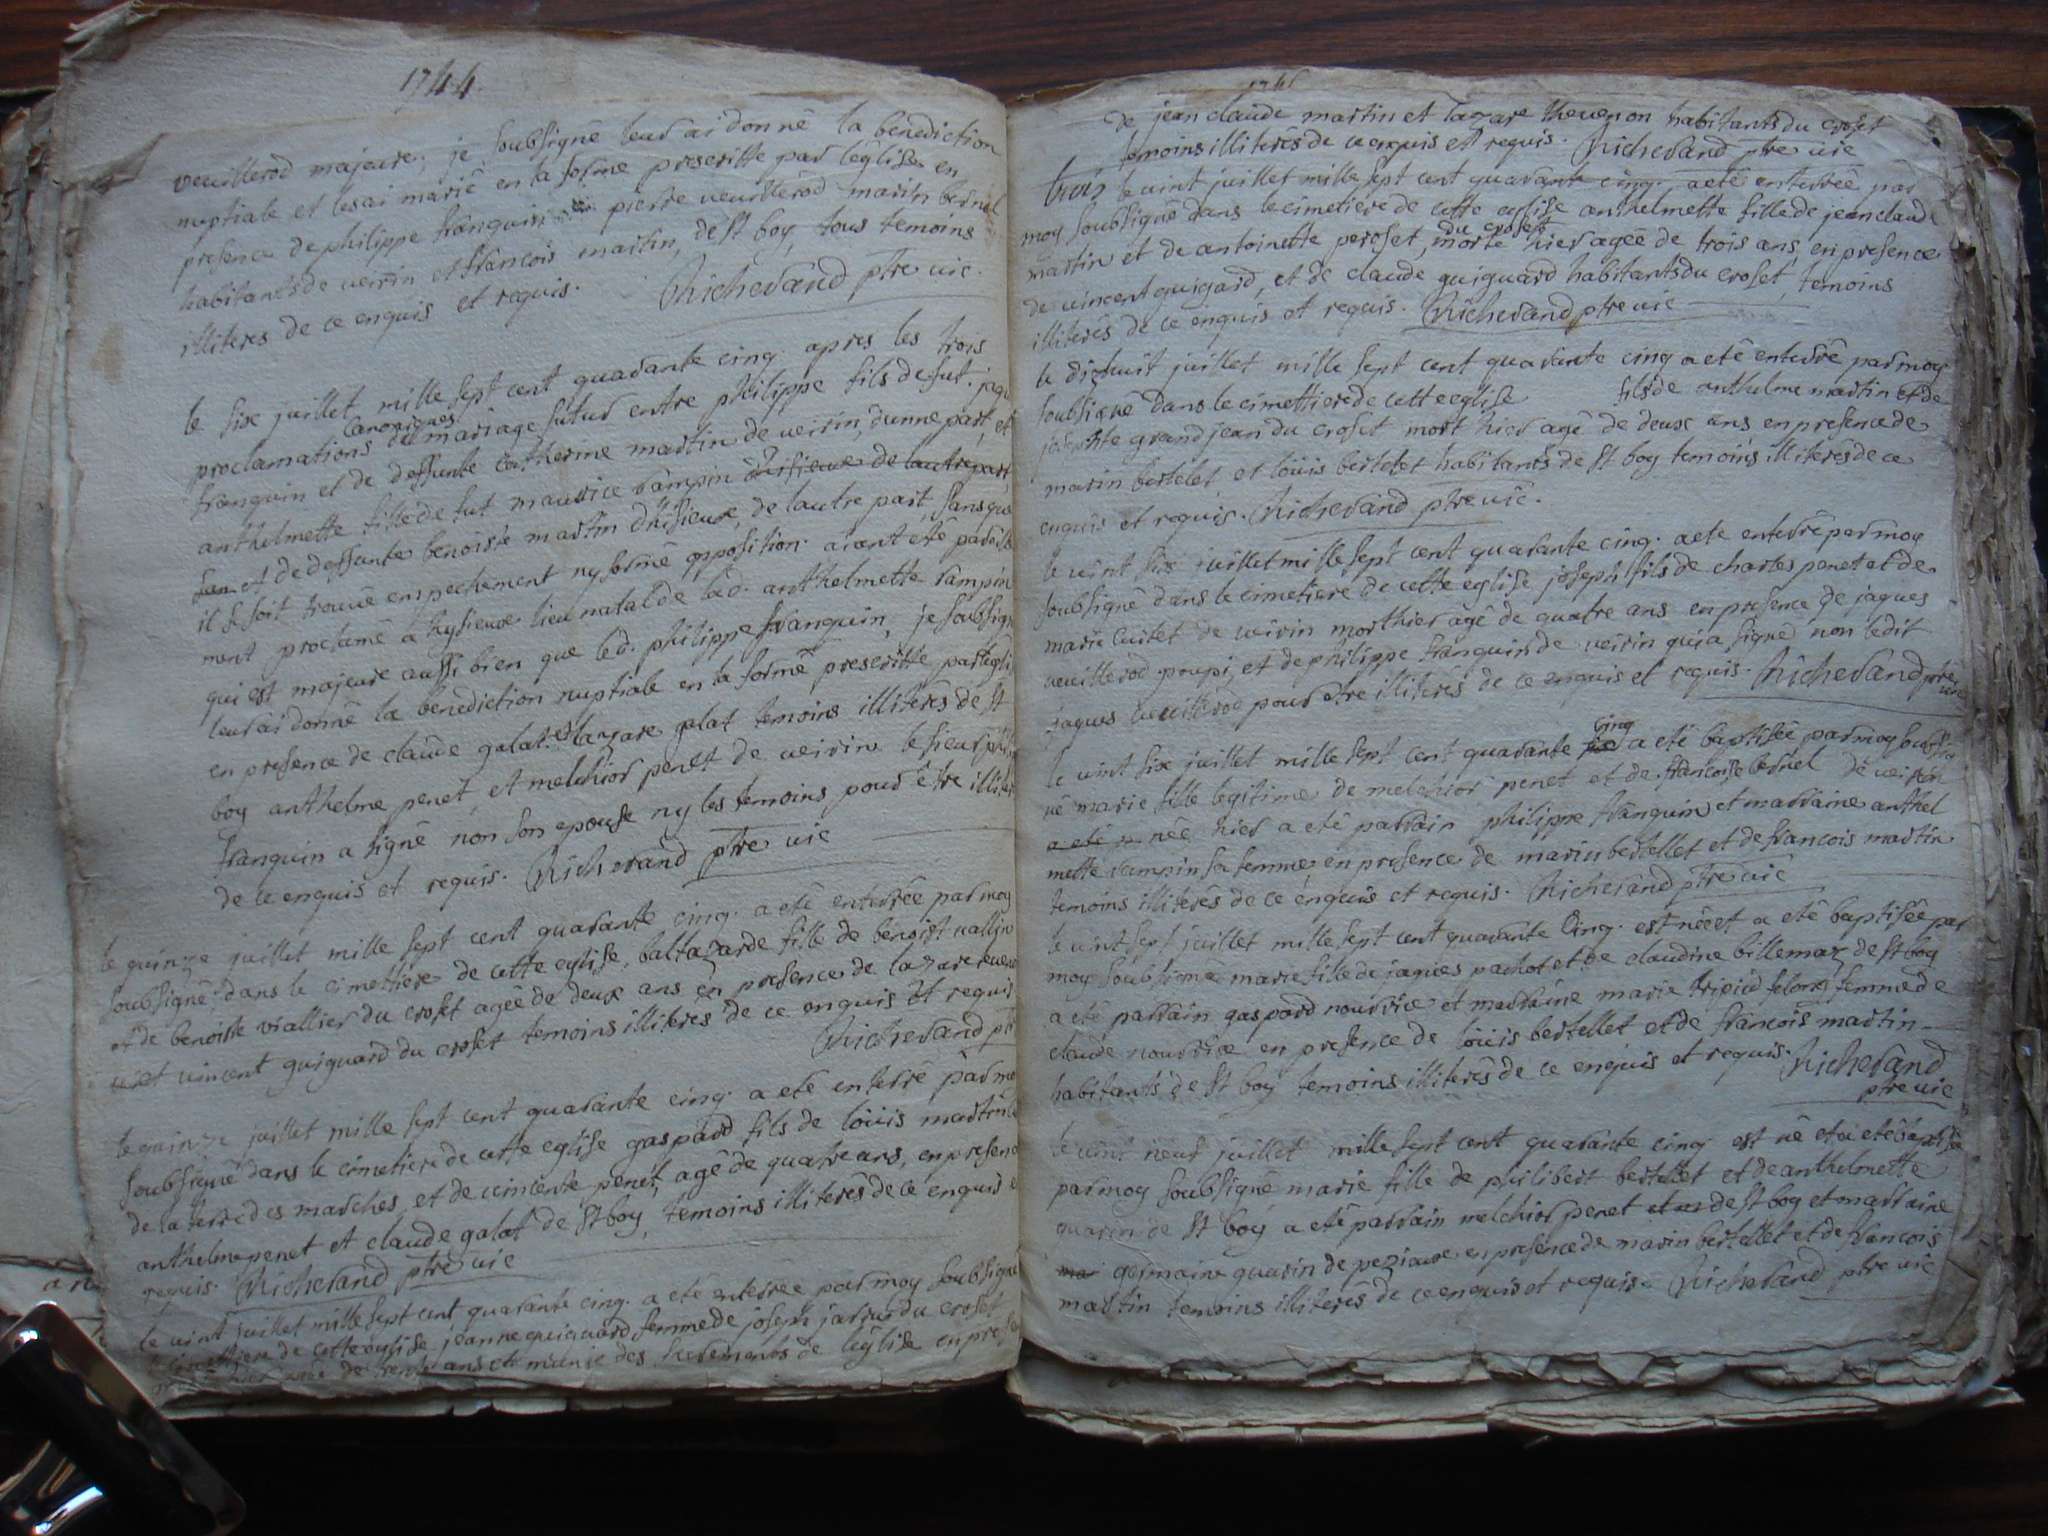 1744.
veuillerod majeure, je soubsigné leur ai donné la benediction
nuptiale et les ai marié en la forme prescritte par l'église en
presence de philippe franquin pierre veuillerod marin bernel
habitants de veirin et francois martin, de st boy tous temoins
illiteres de ce enquis et requis. Richerand ptre vic.
le six juillet mille sept cent quarante cinq. apres les trois
proclamations canoniques du mariage futur entre philippe fils de fut. jaque
franquin et de deffunte catherine martin de veirin, dunne part, et
anthelmette fille de fut maurice rampin d'hisieux de lautre part,
et de deffunte benoiste martin d'hisieux, de lautre part, sans que
il se soit trouvé empechement ny formé opposition. aiant été pareille
ment proclamé a hysieux lieu natal de lad. anthelmette rampin
qui est majeure aussi bien que led. philippe franquin, je soubsigné
leur ai donné la benediction nuptiale en la forme prescritte par l'egli
en presence de claude galat et lazare galat temoins illitérés de st
boy anthelme penet, et melchior penet de veirin le sieur phili
franquin a signé non son epouse ny les temoins pour être illite
de ce enquis et requis. Richerand ptre vic
le quinze juillet mille sept cent quarante cinq. a eté enterrée par moy
soubsigné dans le cimettiere de cette eglise, baltazarde fille de benoist vallin
et de benoiste viallier du croset agée de deux ans en presence de lazare
et vincent guiguard du croset temoins illiterés de ce enquis et requis
Richerand ptr
le quinze juillet mille sept cent quarante cinq. a eté enterré par mo
soubsigné dans le cimetiere de cette eglise gaspard fils de loüis martin
de la terre des marches, et de vincente penet, agé de quatre ans, en presen
anthelme penet et claude galat de st boy, temoins illiterés de ce enquis e
requis. Richerand ptre vic
le vint juillet mille sept cent quarante cinq. a eté enterree par moy soubsigné
cimettiere de cette eglise jeanne guiguard femme de joseph du croset
morte hier agée de trente ans et munie des sacrements de l'église en pre
1745
de jean claude martin et lazare thevenon habitants du croset
temoins illiterés de ce enquis et requis. Richerand ptre vic
trois le vint juillet mille sept cent quarante cinq. a eté enterrée par
moy soubsigné dans le cimetiere de cette eglise anthelmette fille de jean claude
martin et de antoinette peroset, du croset morte hier agée de trois ans, en presence
de vincent guigard, et de claude guiguard habitants du croset, temoins
illiterés de ce enquis et requis. Richerand ptre vic
le dixhuit juillet mille sept cent quarante cinq a eté enterré par moy
soubsigné dans le cimettiere de cette eglise fils de anthelme martin et de
grandjean du croset mort hier agé de deux ans en presence de
marin bertelet et loüis bertelet habitants de st boy temoins illiterés de ce
enquis et requis. Richerand ptre vic.
le vint six juillet mille sept cent quarante cinq. a eté enterré par moy
soubsigné dans le cimetiere de cette eglise joseph fils de charles penet et de
marie cuitet de veirin mort hier agé de quatre ans en presence de jaques
veuillerod poupi, et de philippe franquin de veirin qui a signé non ledit
jaques veuillerod pour etre illiterés de ce enquis et requis. Richerand ptre
vic
le vint six juillet mille sept cent quarante cinq a eté baptisée par moy soubsig
né marie fille legitime de melchior penet et de francoise bernel de veirin
a eté n née hier a eté parrain philippe franquin et marraine anthel
mette rampin sa femme, en presence de marin bertellet et de francois martin
temoins illiterés de ce enquis et requis. Richerand ptre vic
le vint sept juillet mille sept cent quarante cinq. est née et a eté baptisée par
moy soubsigné marie fille de jaques pachot et de claudine billemaz de st boy
a eté parrain gaspard nourrice et marraine marie femme de
claude nourrice en presence de loüis bertellet et de francois martin
habitants de st boy temoins illiterés de ce enquis et requis. Richerand
ptre vic
le vint neuf juillet mille sept cent quarante cinq est né et a eté baptisée
par moy soubsigné marie fille de philibert bertellet et de anthelmette
guarin de st boy a eté parrain melchior penet de st boy et marraine
mar germaine guarin de pezieux en presence de marin bertellet et de francois
martin temoins illiterés de ce enquis et requis. Richerand ptre vic